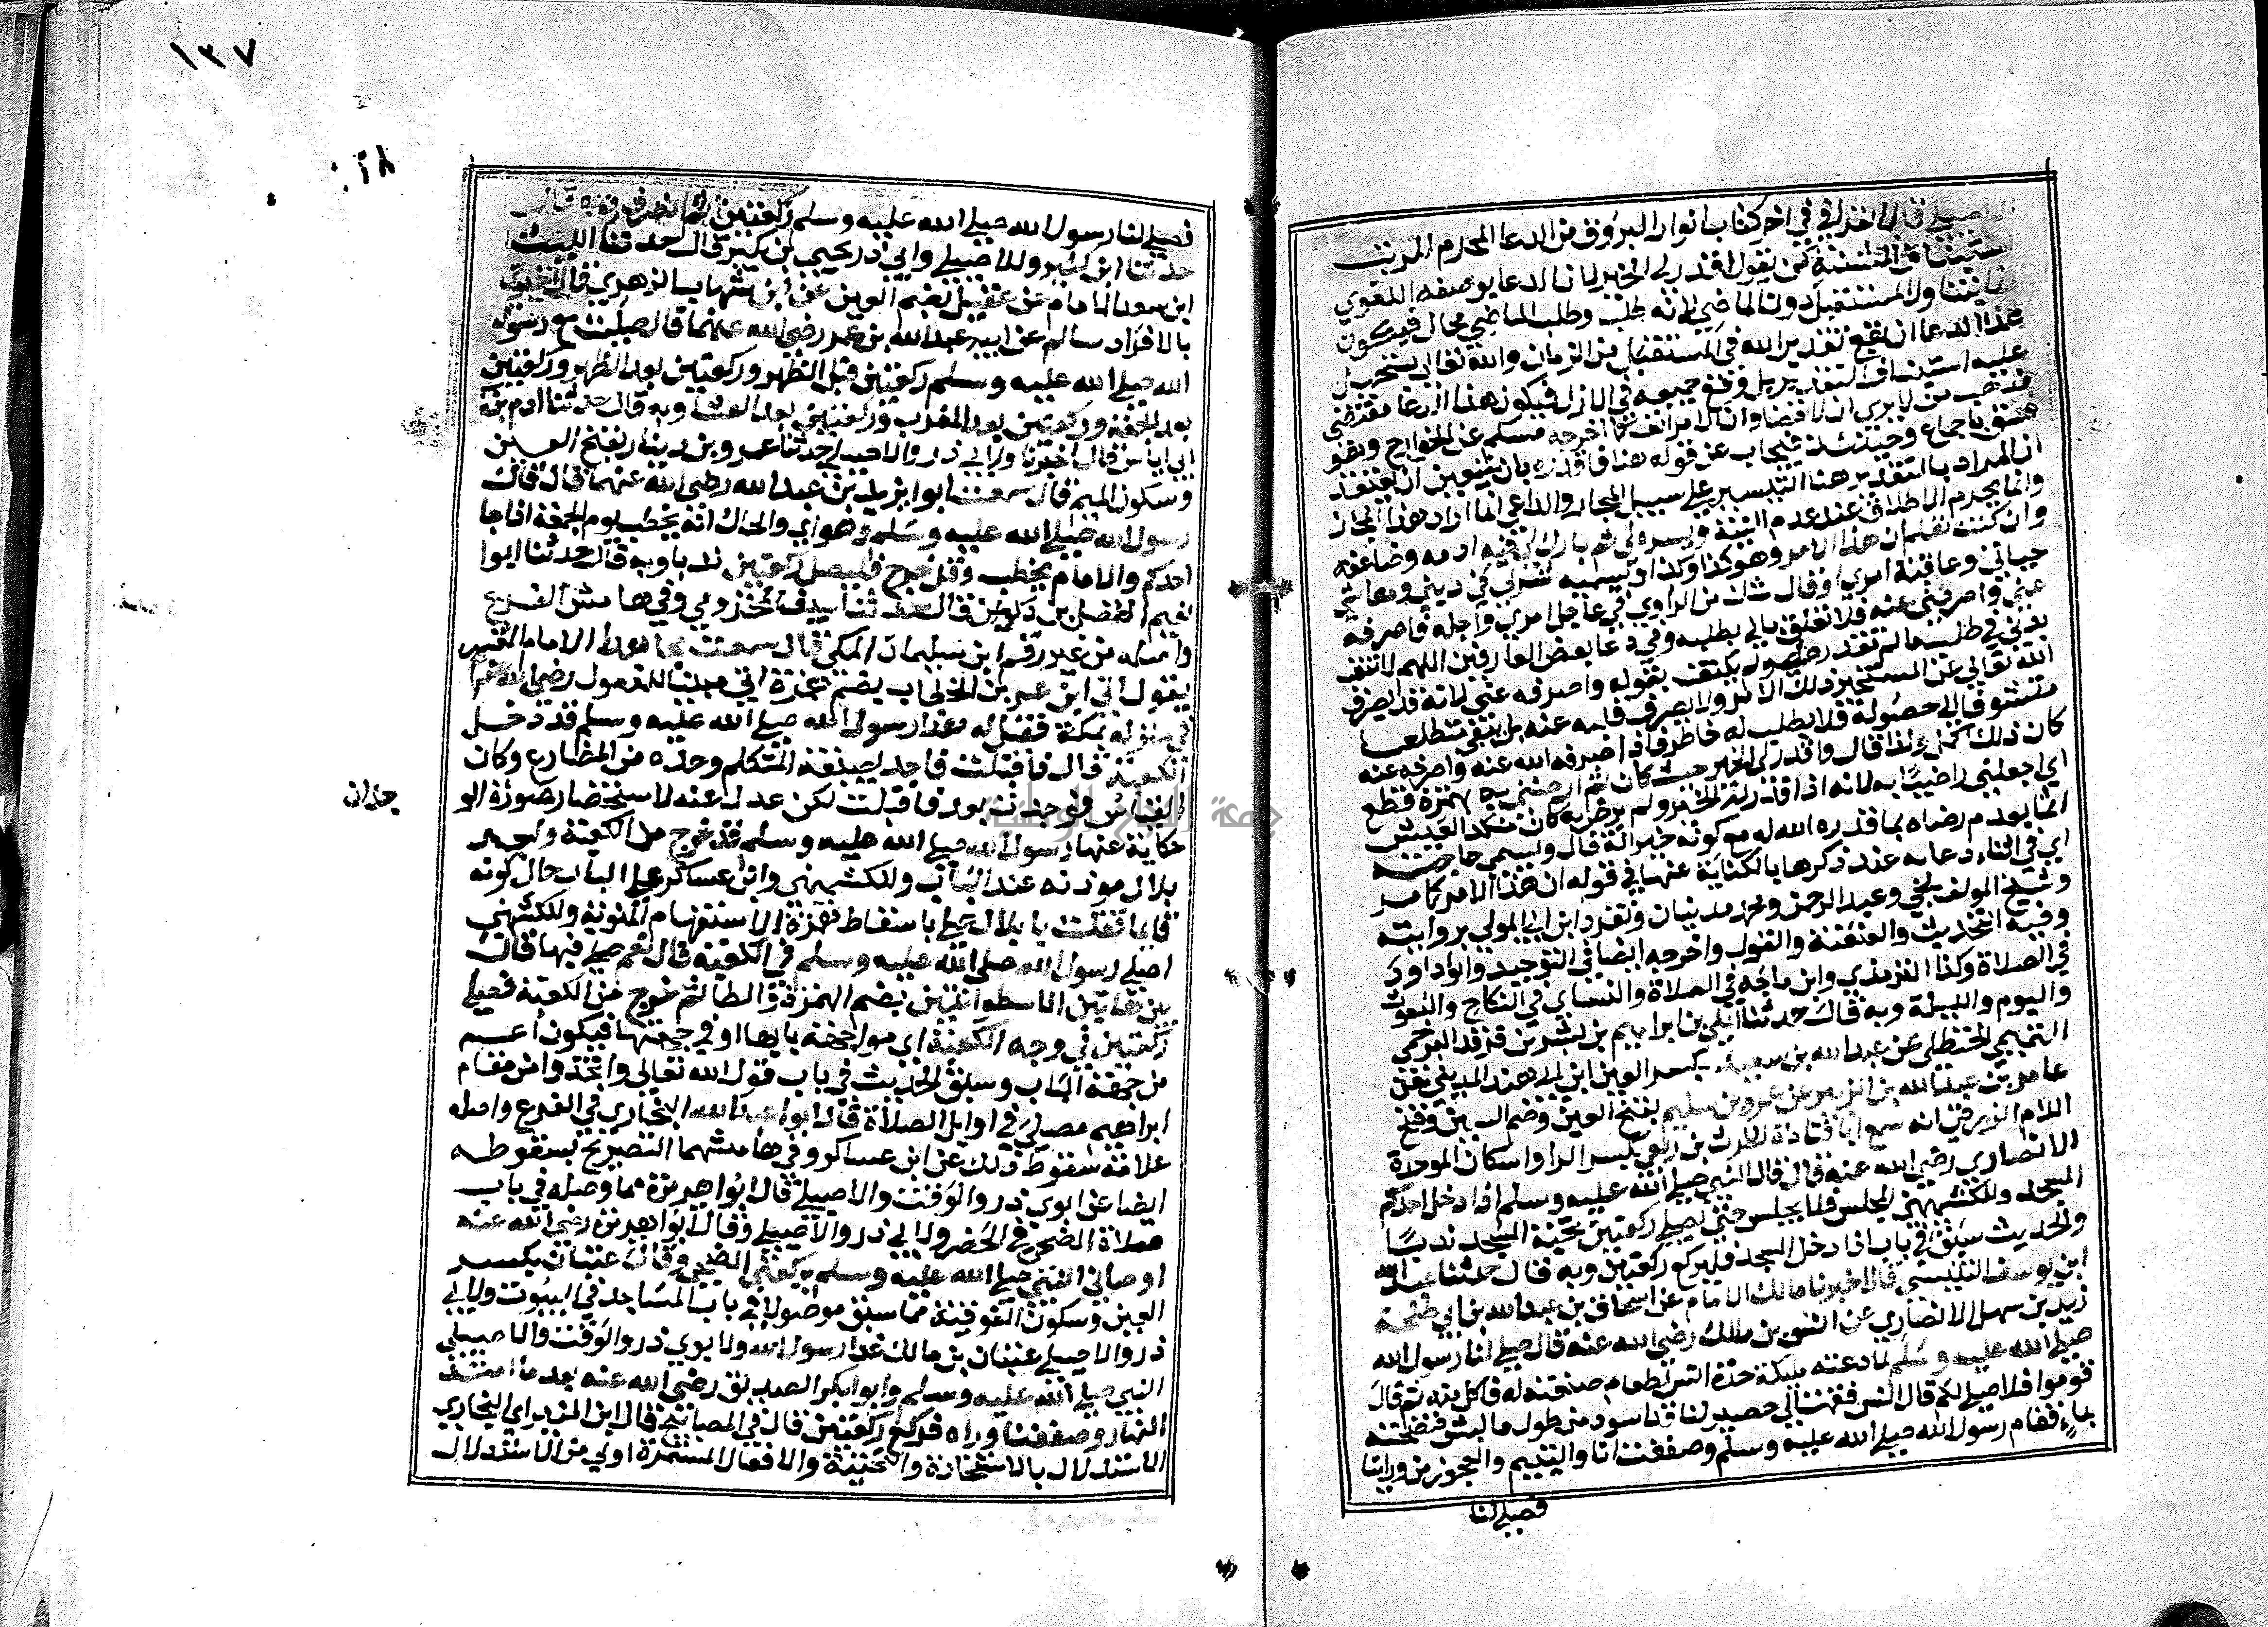 الاصيلي قال القرافي في اخر كتاب انوار البروق من الدعا المحرم المرتب
استينافا المشيئة كمن يقول اقدر لي الخير لان الدعا بوضعه اللغوي
انما يتناول المستقبل دون الماضي لانه طلب وطلب الماضي محال فيكون
هذا الدعا ان يقع تقدير الله في المستقبل من الزمان والله تعالى يستحيل
عليه استيناف التقدير بل وقع جميعه في الازل فيكون هذا الدعا مقتضي
مذهب من لا يري ان لا قضا وان الامر انف كما اخرجه مسلم عن الخوارج وهو
فسق باجماع وحينئذ فيجاب عن قوله هنا فاقدره بان يتعين ان يعتقد
ان المراد بالتقدير هنا التيسير على سبيل المجاز والداعي انما اراد هذا المجاز
وانما يحرم الاطلاق عند عدم النية ويسره لي ثم بارك لي فيه ادمه وضاعفه
وان كنت تعلم ان هذا الامر وهو كذا وكذا او يسميه شر لي في ديني ومعاشي
حياتي وعاقبة امري او قال شك من الراوي في عاجل امري واجله فاصرفه
عني واصرفني عنه فلا تعلق بالي بطلبه وفي دعا بعض العارفين اللهم لا تتعب
بدني في طلب ما لم تقدره لي ولم يكتف بقوله واصرفه عني لانه قد يصرف
الله تعالى عن المستخير ذلك الامر ولا يصرف قلبه عنه بل يبقى متطلعا
متشوقا الى حصوله فلا يطلب له خاطر فاذا صرفه الله عنه وصرفه عنه
كان ذلك اكمل ولذا قال واقدر لي الخير حيث كان ثم ارضني به بهمزة قطع
اي اجعلني راضيا به لانه اذا قدر له الخير ولم يرض به كان منكد العيش
اثما بعدم رضاه بما قدره الله له مع كونه خيرا له قال ويسمي حاجته
اي في اثناء دعايه عند ذكرها بالكناية عنها في قوله ان هذا الامر كما مر
وشيخ المولف بلخي وعبد الرحمن ومحمد مدنيان وتفرد ابن ابي الموالي بروايته
وفيه التحديث والعنعنة والقول واخرجه ايضا في التوحيد وابو داود
في الصلاة وكذا الترمذي وابن ماجه في الصلاة والنساي في النكاح والبعوث
واليوم والليلة وبه قال حدثنا المكي بن ابراهيم بن بشير بن فرقد البرجمي
التميمي الحنظلي عن عبد الله بن سعيد بكسر العين ابن ابي هند المديني عن
عامر بن عبد الله بن الزبير عن عمرو بن سليم بفتح العين وضم السين وفتح
اللام الزرقي انه سمع ابا قتادة الحارث بن ربعي بكسر الراء واسكان الموحدة
الانصاري رضي الله عنه قال قال النبي صلى الله عليه وسلم اذا دخل احدكم
المسجد وللكشميهني المجلس فلا يجلس حتى يصلي ركعتين تحية المسجد ندبا
والحديث سبق في باب اذا دخل المسجد فليركع ركعتين وبه قال حدثنا عبد الله
ابن يوسف التنيسي قال اخبرنا مالك الامام عن اسحاق بن عبد الله بن ابي طلحة
زيد بن سهل الانصاري عن انس بن مالك رضي الله عنه قال صلى لنا رسول الله
صلى الله عليه وسلم لما دعته مليكة جدة انس لطعام صنعته له فاكل منه ثم قال
قوموا فلاصلي لكم قال انس فقمت الى حصير لنا قد اسود من طول ما لبس فنضحته
بماء فقام رسول الله صلى الله عليه وسلم وصففت انا واليتيم والعجوز من ورائنا
فصلى لنا
١٣٧
فصلى لنا رسول الله صلى الله عليه وسلم ركعتين ثم انصرف وبه قال
حدثنا ابن بكير وللاصيلي وابي ذر يحيى بن بكير قال حدثنا الليث
ابن سعد الامام عن عقيل بضم العين عن ابن شهاب الزهري قال اخبرني
بالافراد سالم عن ابيه عبد الله بن عمر رضي الله عنهما قال صليت مع رسول
الله صلى الله عليه وسلم ركعتين قبل الظهر وركعتين بعد الظهر وركعتين
بعد الجمعة وركعتين بعد المغرب وركعتين بعد العشا وبه قال حدثنا ادم بن
ابي اياس قال اخبرنا ولابي ذر والاصيلي حدثنا عمرو بن دينار بفتح العين
وسكون الميم قال سمعت جابر بن عبد الله رضي الله عنهما قال قال
رسول الله صلى الله عليه وسلم وهو اي والحال انه يخطب يوم الجمعة اذا جا
احدكم والامام يخطب وقد خرج فليصل ركعتين ندبا وبه قال حدثنا ابوا
نعيم الفضل بن دكين قال حدثنا سيف المخزومي وفي هامش الفرع
واصله من غير رقم ابن سليمان المكي قال سمعت مجاهدا الامام المفسر
يقول اتي ابن عمر بن الخطاب بضم همزة اتي مبنيا للمفعول رضي الله عنهما
في منزله بمكة فقيل له هذا رسول الله صلى الله عليه وسلم قد دخل
الكعبة قال فاقبلت فاجد بصيغة المتكلم وحده من المضارع وكان
القياس فوجدت بعد فاقبلت لكن عدل عنه لاستحضار صورة الو
جدان
حكاية عنها رسول الله صلى الله عليه وسلم قد خرج من الكعبة واجد
بلال موذنه عند الباب وللكشميهني وابن عساكر على الباب حال كونه
قايما فقلت يا بلال صلى باسقاط همزة الاستفهام المنوية وللكشميهني
اصلى رسول الله صلى الله عليه وسلم في الكعبة قال نعم صلى فيها قلت
بين هاتين الاسطوانتين بضم الهمزة والطا ثم خرج من الكعبة فصلى
ركعتين في وجه الكعبة اي مواجهة بابها او في جهتها فيكون اعم
من جهة الباب وسبق الحديث في باب قول الله تعالى واتخذوا من مقام
ابراهيم مصلى في اوايل الصلاة قال ابوا عبد الله البخاري في الفرع واصله
علامة سقوط ذلك عن ابن عساكر وفي هامشهما التصريح بسقوطه
ايضا عن ابوي ذر والوقت والاصيلي قال ابوا هريرة مما وصله في باب
صلاة الضحى في الحضر ولابي ذر والاصيلي وقال ابوا هريرة رضي الله عنه
اوصاني النبي صلى الله عليه وسلم بركعتي الضحى وقال عتبان بكسر
العين وسكون الفوقية مما سبق موصولا في باب المساجد في البيوت ولابي
ذر والاصيلي عتبان بن مالك غدا رسول الله ولابوي ذر والوقت والاصيلي
النبي صلى الله عليه وسلم وابوا بكر الصديق رضي الله عنه بعد ما امتد
النهار وصففنا وراه فركع ركعتين قال في المصابيح قال ابن المنير اي البخاري
الاستدلال بالاستخارة والتحية والافعال المستمرة اولى من الاستدلال